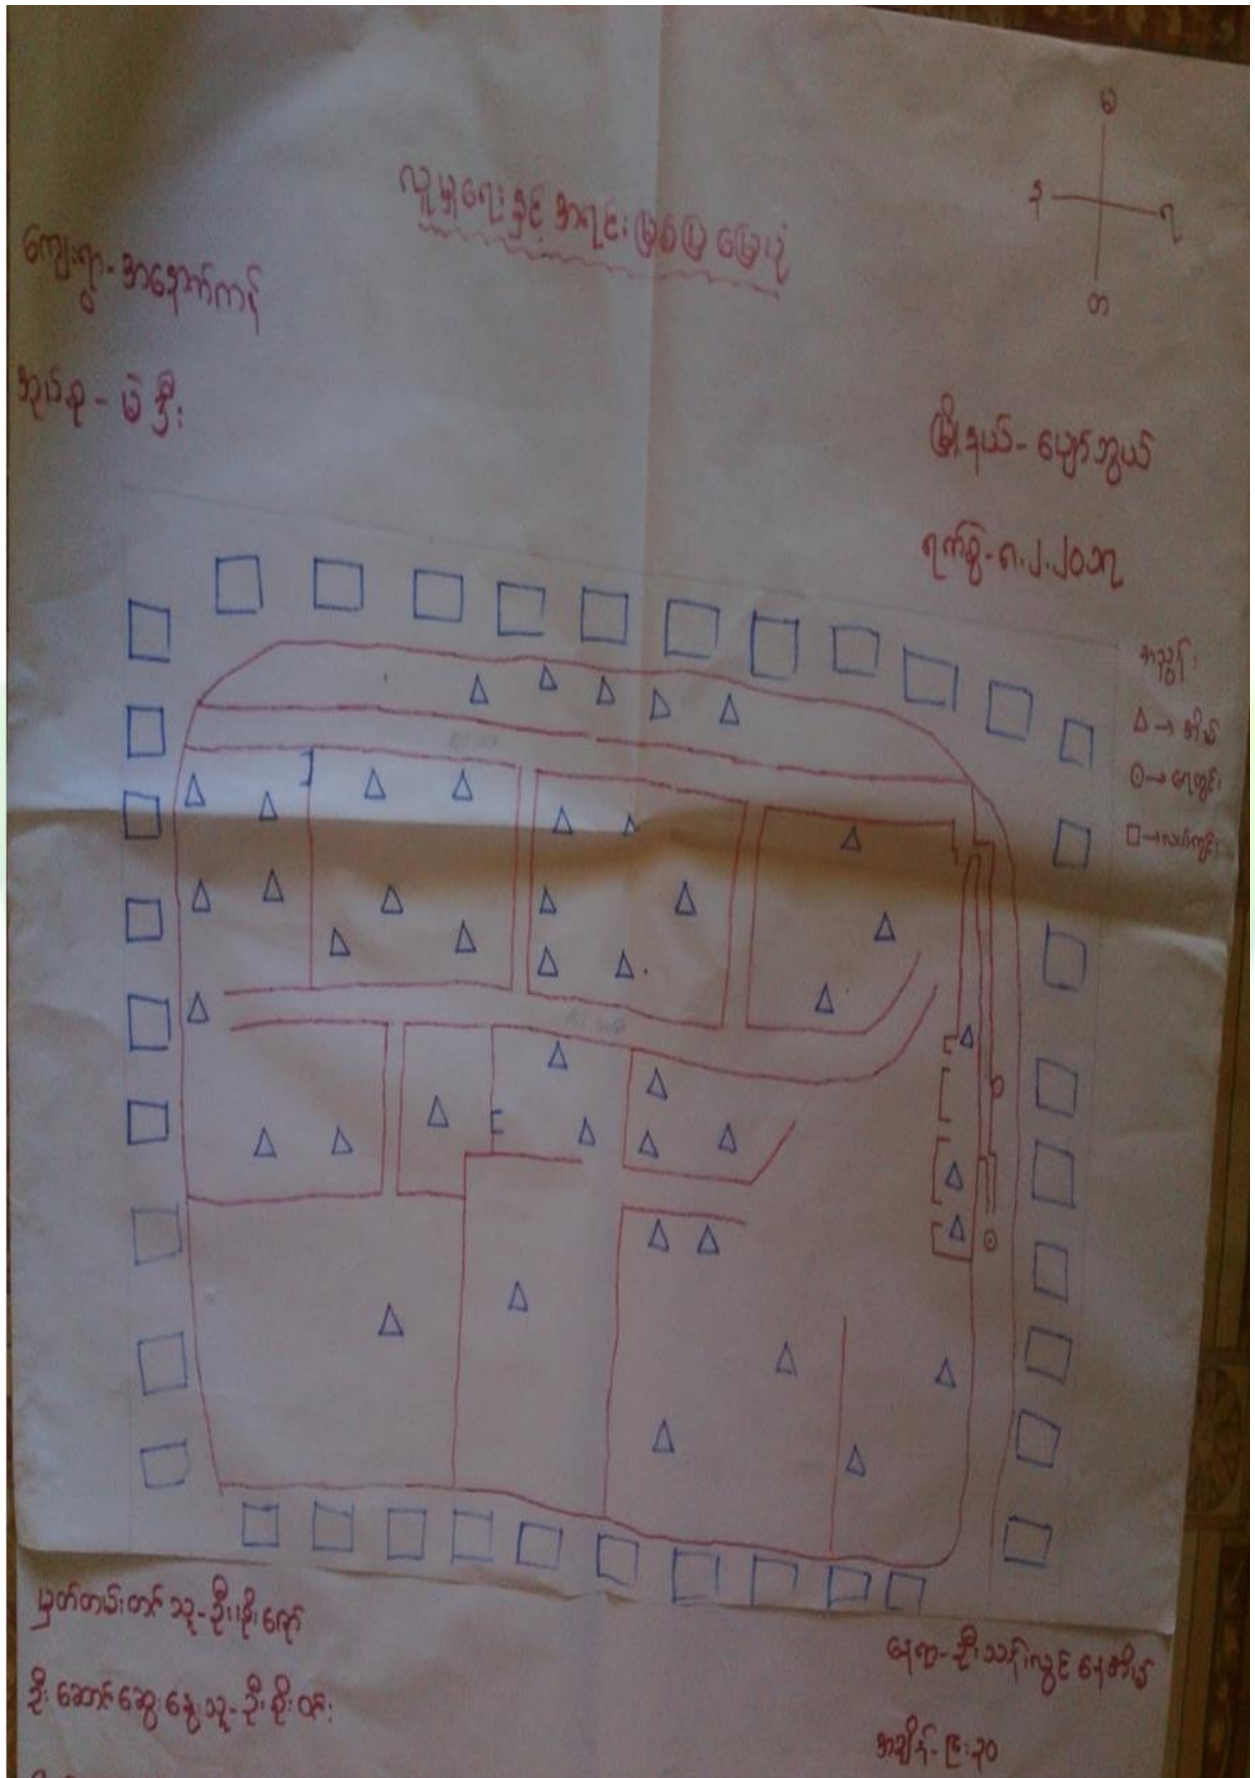 မ
လူမှုရေးနှင့် အရင်းမြစ်ပြ မြေပုံ
န
ရ
တ
ကျေးရွာ - အနောက်ကန်
အုပ်စု - မဲဒီး
မြို့နယ် - ပျော်ဘွယ်
ရက်စွဲ - ၈.၂.၂၀၁၇
အညွှန်း
△ → အိမ်
⊙ → ရေတွင်း
□ → လယ်ကွင်း
မှတ်တမ်းတင်သူ - ဦးစိုးဇော်
ဦးဆောင်ဆွေးနွေးသူ - ဦးစိုးဝင်း
နေရာ - ဦးသန်းလွင်နေအိမ်
အချိန် - ၉:၃၀